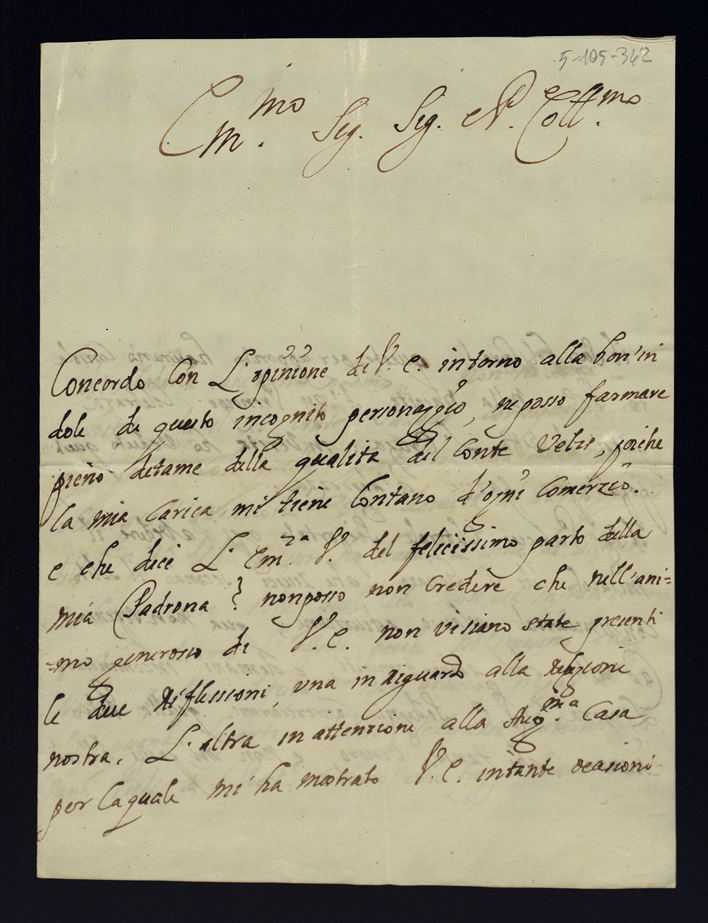 5-105-342
Em.mo Sig. Sig. P. Coll.mo
Concordo con L'opinione di V. E. intorno alla bon'in
dole di questo incognito personaggio, ne posso
pieno della qualità del Conte Vels, poiche
la mia carica mi tiene lontano d'ogni Comerzio.
e che dici L'Em.za V. del felicissimo parto della
mia Padrona? non posso non credere che nell'ani=
=mo generoso di V. E. non vi siano state presenti
le due riflessioni, una in riguardo alla religione
nostra, L'altra in attenzione alla Aug.ma Casa
per la quale mi ha mostrato V. E. in tante ocasioni